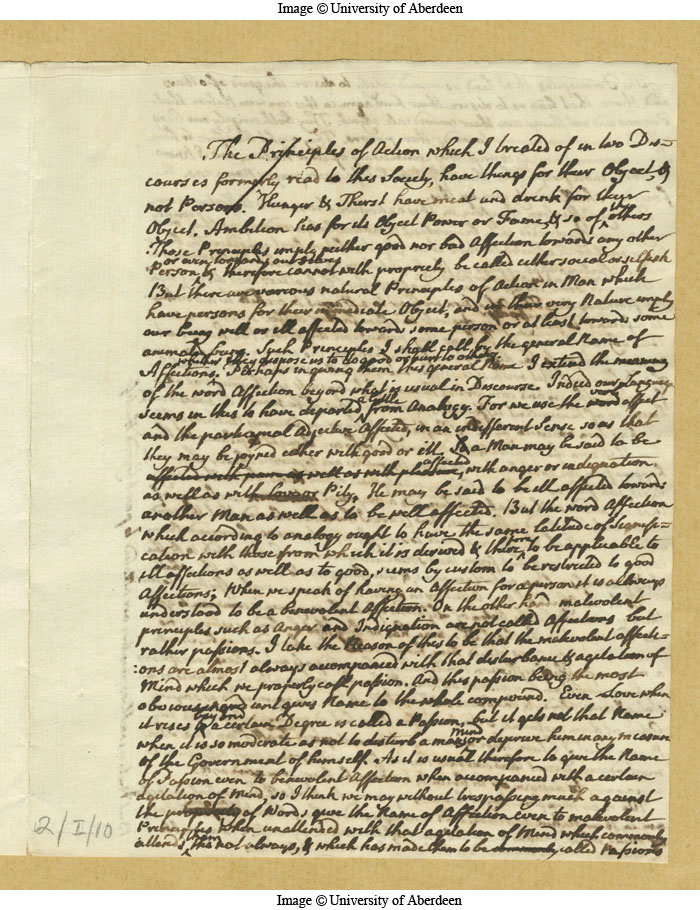 Image © University of Aberdeen
The Principles of Action which I treated of in two Dis-
courses formerly read to this Society, have things for their Object, &
not Persons. Hunger & Thirst have meat and drink for their
Object. Ambition has for its Object Power or Fame, & so of the others
These Principles imply neither good nor bad Affection towards any other
or even towards ourselves
Person, & therefore cannot with propriety be called either social or selfish
But there are various natural Principles of Action in Man which
have persons for their immediate Object, and in their very Nature imply
our being well or ill affected towards some person or at least towards some
animated being. Such Principles I shall call by the general Name of
whether they dispose us to do good or hurt to others.
Affections. Perhaps in giving them this general Name I extend the meaning
of the word Affection beyond what is usual in Discourse. Indeed our Language
seems in this to have departed a little from Analogy. For we use the word affect
and the participial Adjective Affected, in an indifferent Sense so as that
they may be joyned either with good or ill. So a Man may be said to be
affected
affected with as well as with with anger or indignation
as well as with love or Pity. He may be said to be ill affected towards
another Man as well as to be well affected. But the word Affection
which according to analogy ought to have the same latitude of Signifi-
cation with those from which it is derived & therefore to be applicable to
ill affections as well as to good, seems by custom to be restricted to good
Affections; When we speak of having an Affection for a person it is allways
understood to be a benevolent Affection. On the other hand malevolent
principles such as Anger and Indignation are not called Affections but
rather passions. I take the Reason of this to be that the malevolent affecti-
:ons are almost always accompanied with that disturbance & agitation of
Mind which we properly call passion. And this passion being the most
obvious ingredient gives Name to the whole compound. Even Love when
it rises beyond a certain Degree is called a Passion, but it gets not that Name
when it is so moderate as not to disturb a mans Mind or deprive him in any measure
of the Government of himself. As it is usual therefore to give the Name
of Passion even to benevolent Affection when accompanied with a certain
agitation of Mind, so I think we may without trespassing much against
the propriety of Words give the Name of Affection even to malevolent
Principles when unattended with that agitation of Mind which commonly
attends them tho not always, & which has made them to be commonly called Passions
2/I/10
Image © University of Aberdeen